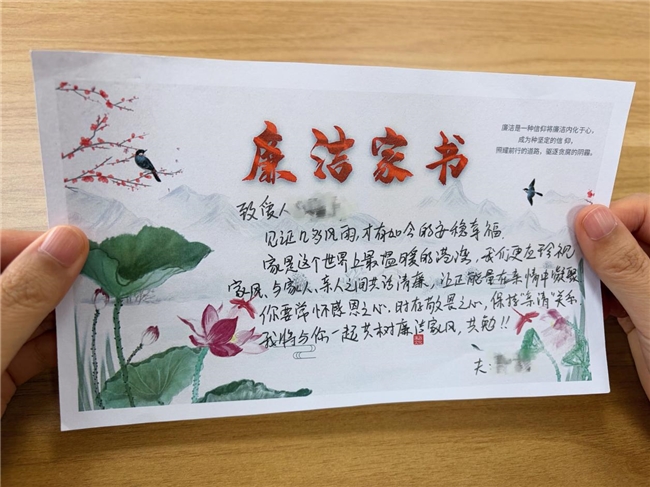 廉洁家书
廉洁是一种信仰将廉洁内化于心，
成为种坚定的信 仰，
照耀前行的道路，驱逐贪腐的阴霾。
致爱人
见证几多风雨，才有如今的安稳幸福
家是这个世界上最温暖的港湾，我们更应珍视
家风、与家人、亲人之间共话清廉，让正能量在亲情中凝聚
你要常怀感恩之心、时存敬畏之心，保持“亲清”关系
我将与你一起共树廉洁家风，共勉！！
夫：